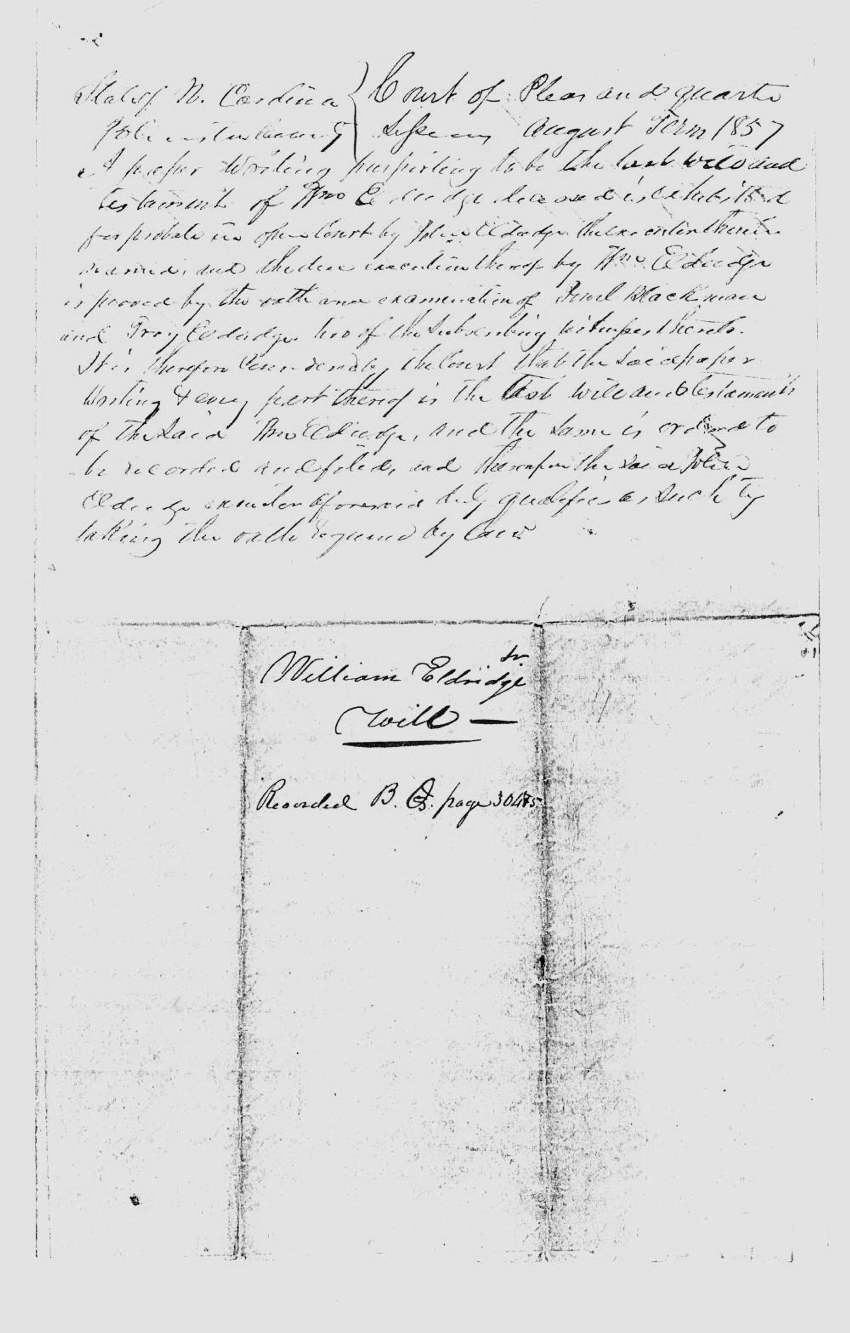 State of N. Carolina } Court of Pleas and quarter
Johnston County } Sessions August Term 1857
A paper writing purporting to be the last will and
testament of Wm Eldridge deceased is exhibited
for probate in open Court by John Eldridge the executor therein
named, and the due execution thereof by Wm Eldridge
is proved by the oath and examination of Blackman
and Troy Eldridge two of the Subscribing witnesses thereto.
It is therefore Considered by the Court that the said paper
Writing & every part thereof is the last will and testament
of the said Wm Eldridge, and the same is ordered to
be recorded and filed, and thereupon the said John
Eldridge executor aforesaid duly qualifies as such by
taking the oath required by law
William Eldridge Sr
Will —
Recorded B. page 304